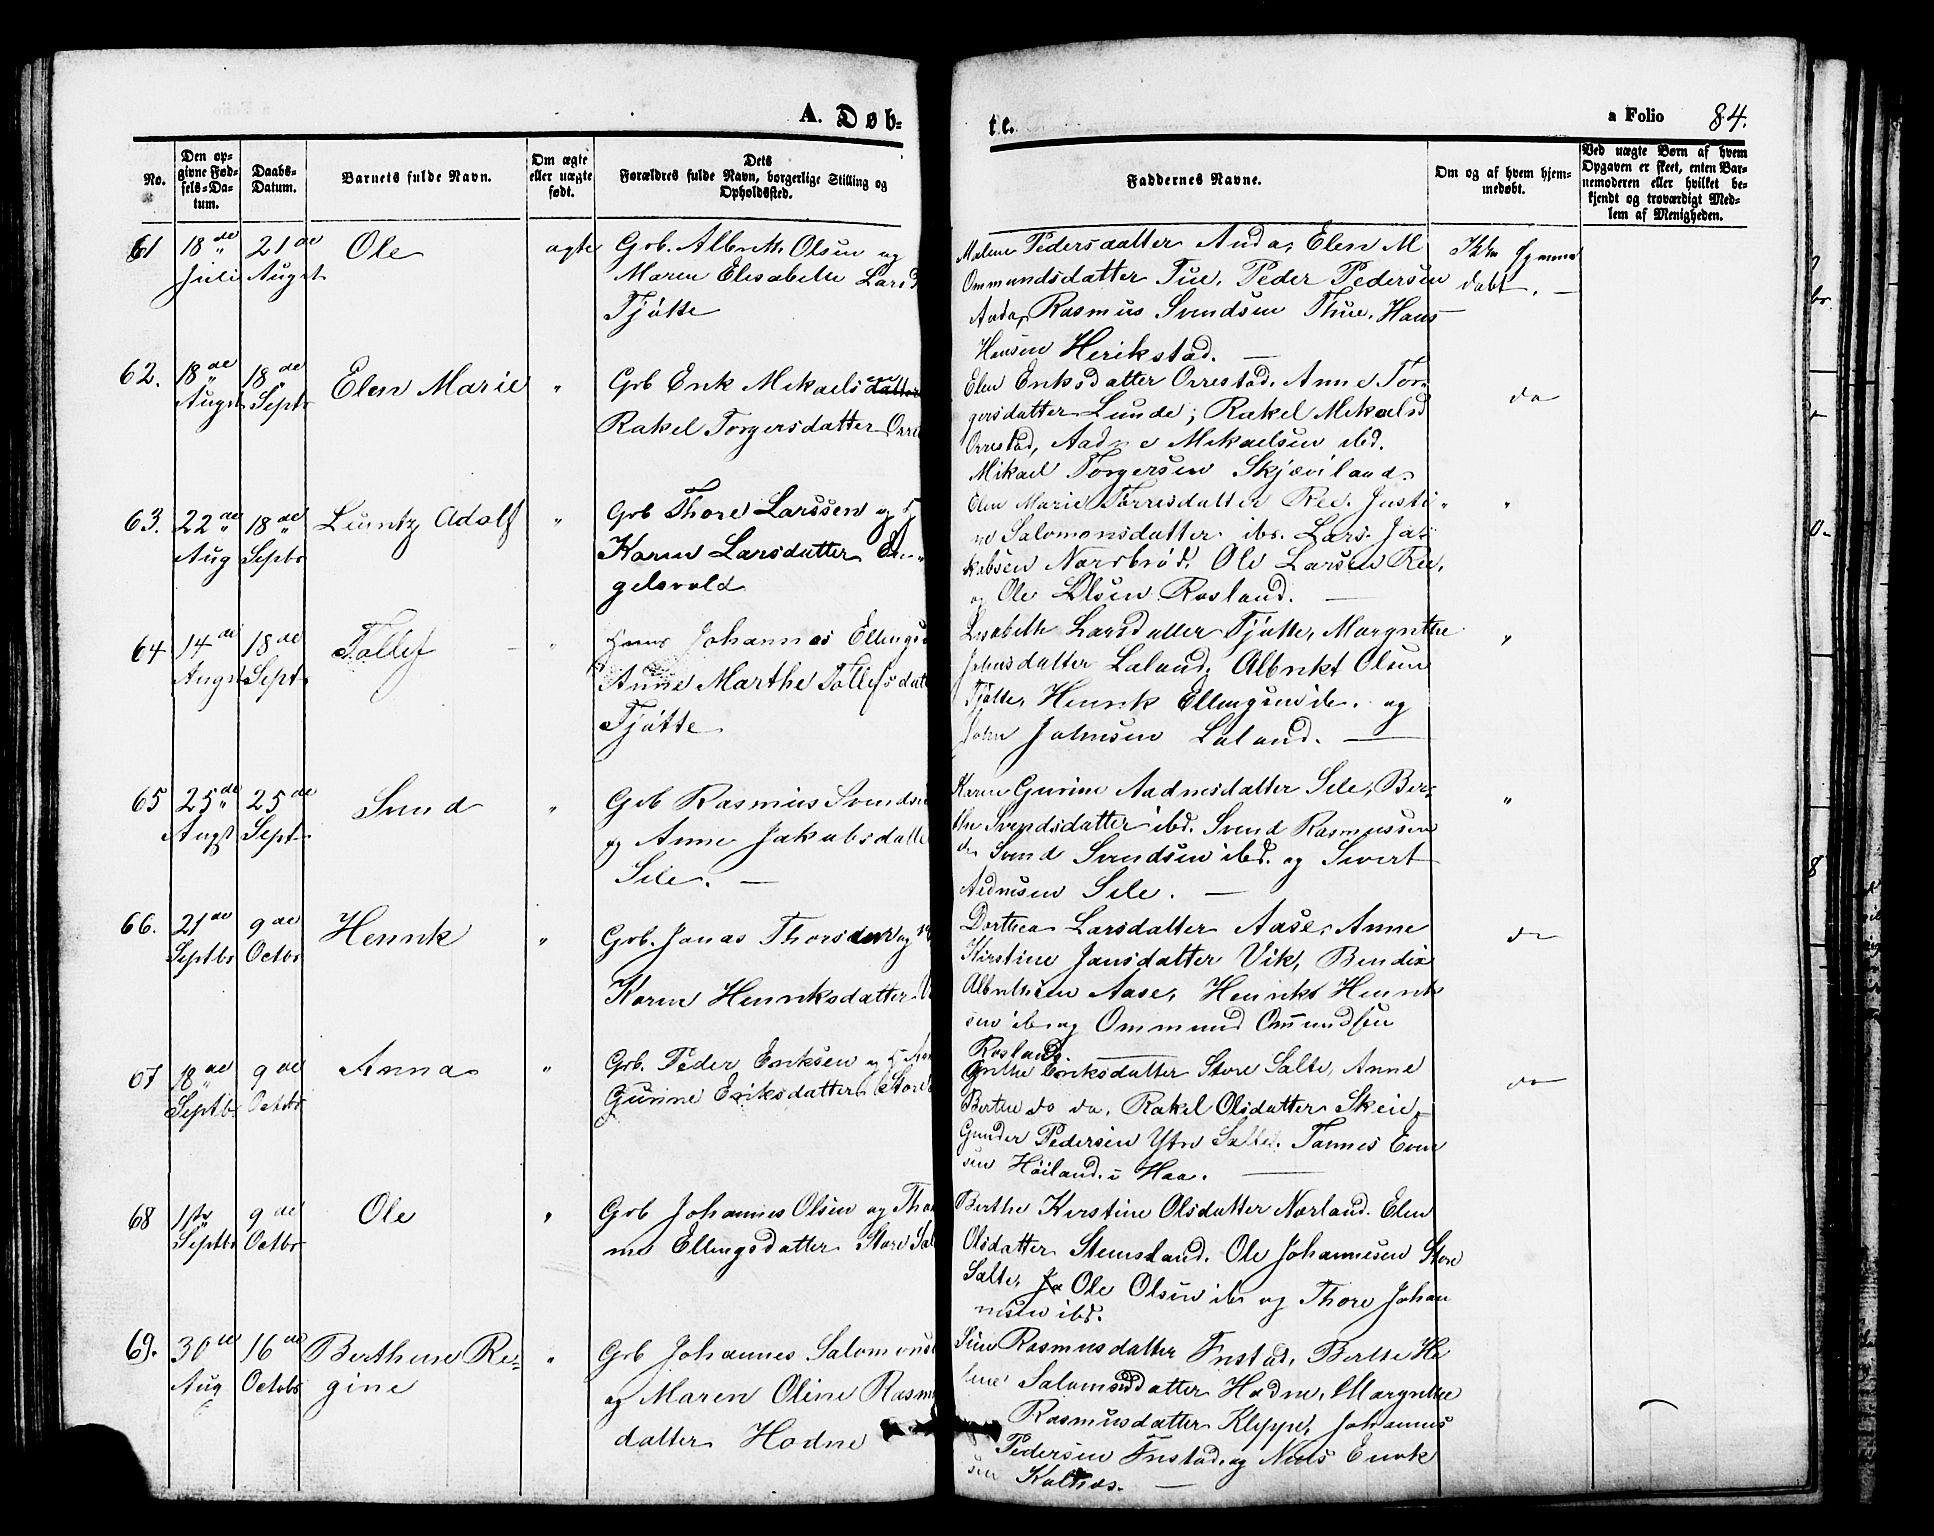 A. Døb=
te.
a Folio 84.
No.
Den op=
givne Fød=
sels=Da=
tum.
Daabs=
Datum.
Barnets fulde Navn.
Om ægte
eller uægte
født.
Dets
Forældres fulde Navn, borgerlige Stilling og
Opholdssted.
Faddernes Navne.
Om og af hvem hjem=
medøbt.
Ved uægte Børn af hvem
Opgaven er skeet, enten Bar=
nemoderen eller hvilket be=
kjendt og troværdigt Med=
lem af Menigheden.
61 18de Juli 21de Augst Ole ægte
Grb. Albreth Olsen og
Maren Elisabeth Larsd
Tjøtte
Malene Pedersdatter Anda, Elen M
Ommundsdatter Tue, Peder Pedersen
Anda, Rasmus Svendsen Thue, Hans
Hansen Herikstad. —
Ikke hjemme
døbt. —
62. 18de Augst 18de Septr Elen Marie "
Grb Erik Mikaelsen
Rakel Torgersdatter Orre
Elen Eriksdatter Orrestad, Anne Tor=
gersdatter Lunde; Rakel Mikaelsd
Orrestad, Aadne Mikaelsen ibd.
Mikael Torgersen Skjæviland
do
63. 22de Aug 18de Septbr Luntz Adolf "
Grb Thore Larssen og H
Karen Larsdatter En=
gelsvold
Elen Marie Torresdatter Ree. Justi=
ne Salomonsdatter ibd. Lars Ja=
kobsen Norsbrød, Ole Larsen Ree,
og Ole Olsen Rosland. —
"
64 14de Augst 18de Septr Tollef "
Johannes Ellings
Anne Marthe Tollefsdatt
Tjøtte
Lisabeth Larsdatter Tjøtte, Margrethe
Johnsdatter Laland, Albrikt Olsen
Tjøtte, Henrik Ellingsen ib. og
John Johnsen Laland. —
"
65 25de Augst 25de Septr Svend "
Grb Rasmus Svendse
og Anne Jakobsdatte
Sele. —
Karen Gurine Aadnesdatter Sele, Ber=
the Svendsdatter ibd. Svend Rasmussen
do Svend Svendsen ibd. og Sivert
Aadnesen Sele. —
"
66. 21de Septbr 9de Octbr Henrik "
Grb. Jonas Thorsen og
Karen Henriksdatter
Dorthea Larsdatter Aase, Anne
Kirstine Jansdatter Vik, Bendix
Albrethsen Aase, Henrik Henrik
sen ib og Ommund Omundsen
Rosland. —
do
67 18de Septbr 9de Octbr Anna "
Grb. Peder Eriksen og H
Gurine Eriksdatter Store
Grethe Eriksdatter Store Salte, Anne
Berthe do do, Rakel Olsdatter Skeie,
Gunder Pedersen Ytre Salte, Tønnes Even
sen Høiland i Haa. —
do
68 1ste Septbr 9de Octbr Ole "
Grb Johannes Olsen og Tho
ne Ellingsdatter Store Sal
Berthe Kirstine Olsdatter Norland. Elen
Olsdatter Stemsland. Ole Johannesen Store
Salte, Ole Olsen ib og Thore Johan
nesen ibd.
69. 30te Aug 16de Octobr Berthine Re=
gine "
Grb Johannes Salomons
og Maren Oline Rasm
datter Hodne
Rasmusdatter Frestad, Berthe He
lene Salomsddatter Hodne, Margrethe
Rasmusdatter Kleppe, Johannes
Pedersen Frestad, og Niels Enok
sen